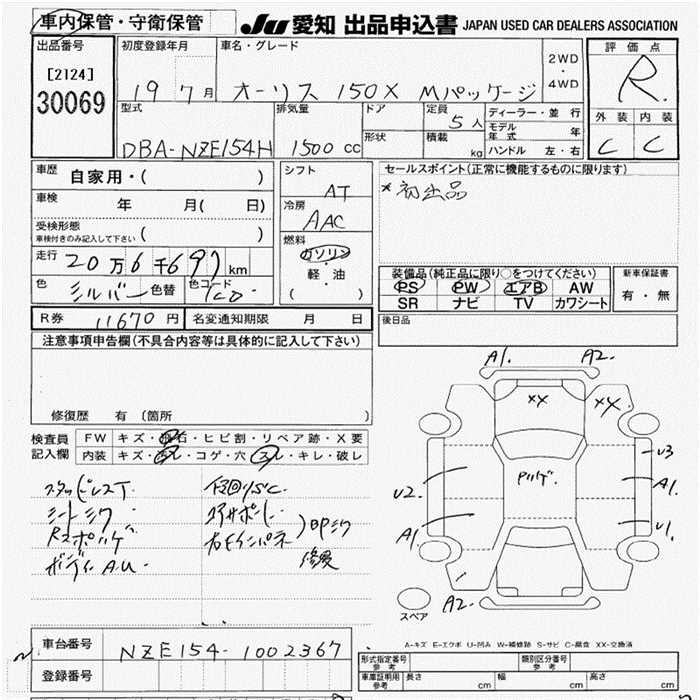 車内保管・守衛保管
JU 愛知 出品申込書 JAPAN USED CAR DEALERS ASSOCIATION
出品番号
[2124]
30069
初度登録年月
19 7月
車名・グレード
オーリス 150X Mパッケージ
2WD
・
4WD
評価点
R.
外装 内装
C C
型式
DBA-NZE154H
排気量
1500 cc
ドア
形状
定員
5人
積載
kg
ディーラー・並行
モデル年式 年
ハンドル 左・右
車歴
自家用・( )
車検
年 月( 日)
受検形態
車検付きのみ記入して下さい ( )
走行
20万6千697 km
色
シルバー 色替
色コード
1C0
シフト
AT
冷房
AAC
燃料
ガソリン
軽・油
( )
セールスポイント(正常に機能するものに限ります)
*初出品
装備品(純正品に限り○をつけてください)
PS PW エアB AW
SR ナビ TV カワシート
新車保証書
有・無
R券 11670円
名変通知期限 月 日
後日品
注意事項申告欄(不具合内容等は具体的に記入して下さい)
修復歴 有 (箇所 )
検査員
記入欄
FW キズ・飛石・ヒビ割・リペア跡・X要
内装 キズ・汚レ・コゲ・穴・スレ・キレ・破レ
A1. A2.
XX XX
U3
A1.
U1.
U2.
A1
A2.
スペア
シートシワ
ボディAU.
修復
A-キズ E-エクボ U-凹み W-補修跡 S-サビ C-腐食 XX-交換済
車台番号
NZE154-1002367
登録番号
型式指定番号
参考
類別区分番号
参考
車庫証明用
参考
長さ cm
幅 cm
高さ cm